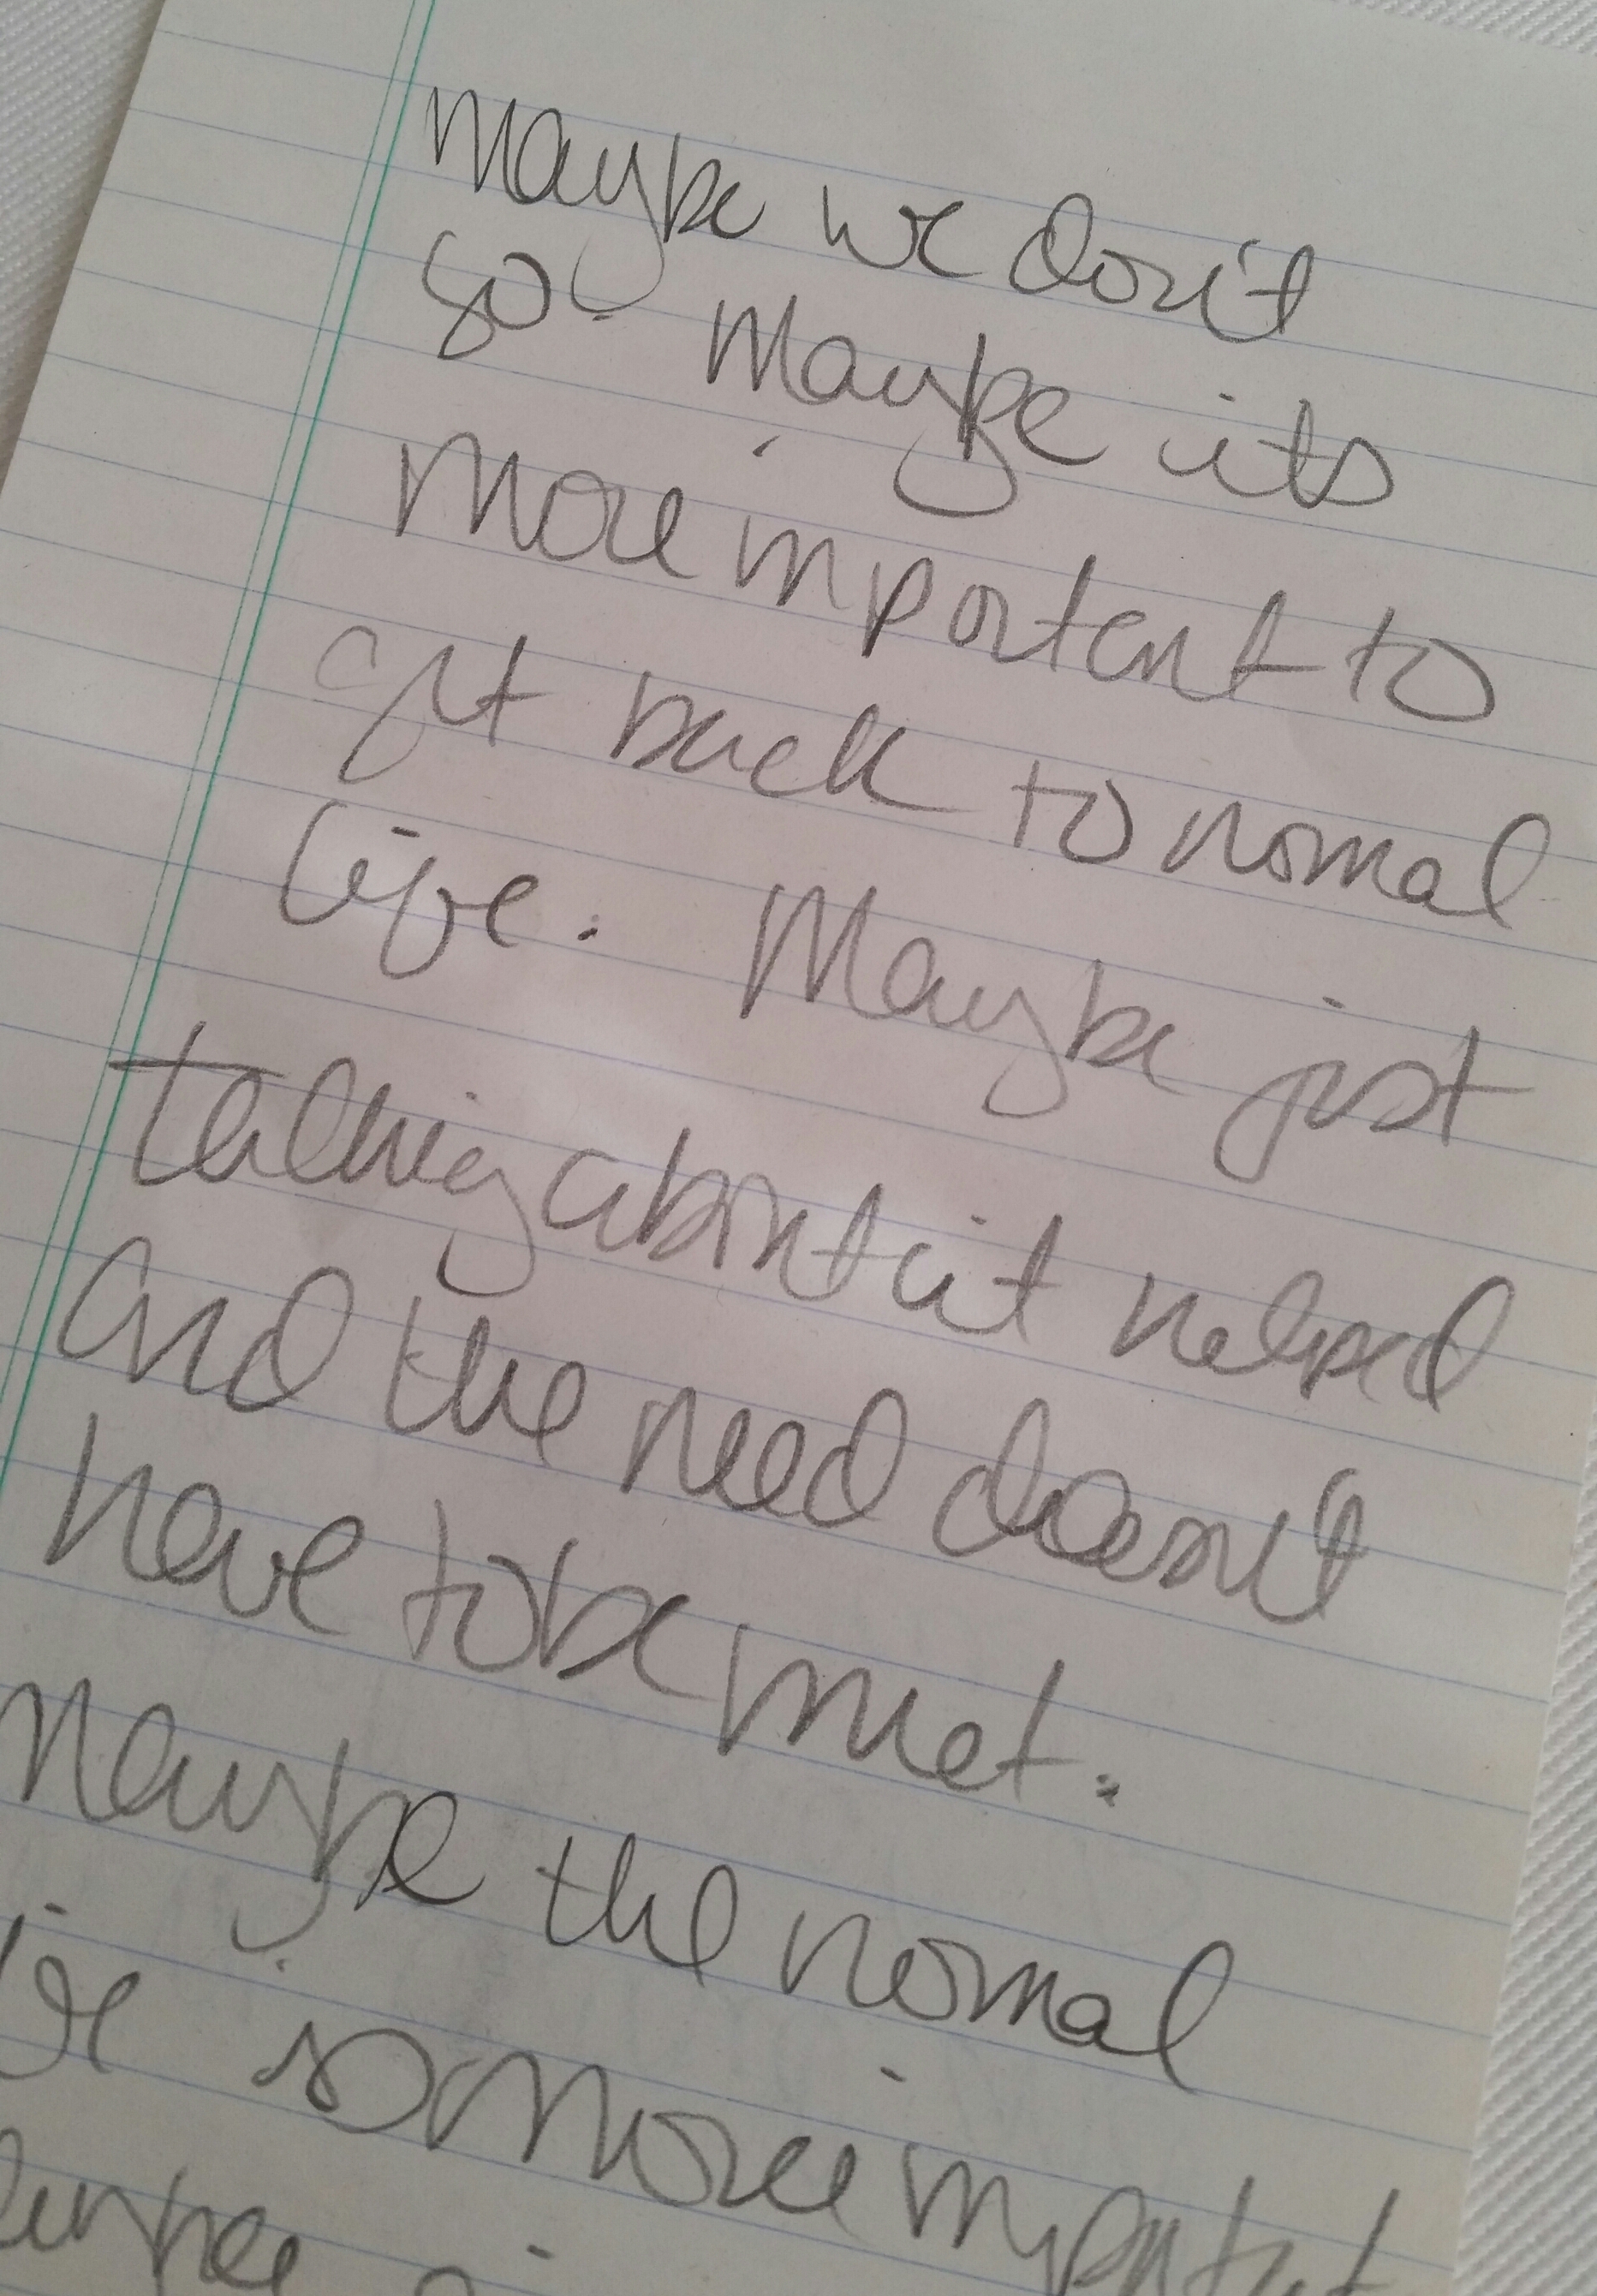 Maybe we don't
go. Maybe its
more important to
get back to normal
life. Maybe just
talking about it helped
and the need doesn't
have to be met.
Maybe the normal
is more important